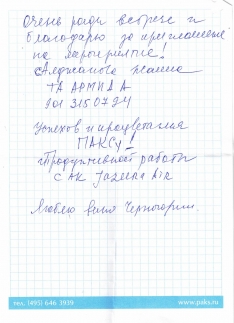 Очень рады встрече и
благодарю за приглашение
на мероприятие!
ТА АРМИДА
201 3150724
Успехов и процветания
ПАКСу!
Продуктивной работы
с АК
Люблю вино Черногории.
тел. (495) 646 3939
www.paks.ru